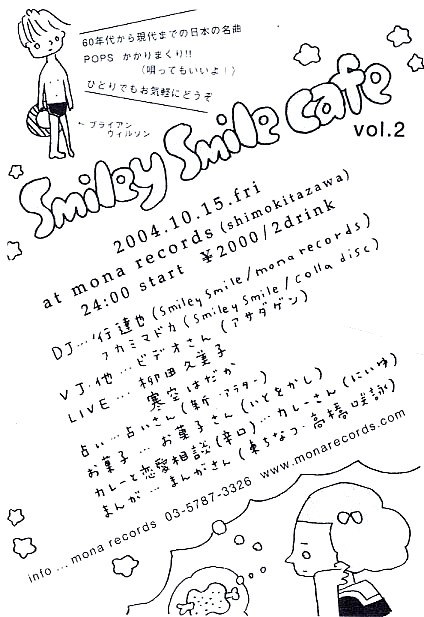 60年代から現代までの日本の名曲
POPS かかりまくり!!
(唄ってもいいよ!)
ひとりでもお気軽にどうぞ
←ブライアン
ウィルソン
Smiley Smile cafe
vol.2
2004.10.15.fri
at mona records (shimokitazawa)
24:00 start ¥2000/2drink
DJ…行達也(Smiley Smile/mona records)
アカミマドカ(Smiley Smile/Colla disc)
VJ.他…ビデオさん(アサダゲン)
LIVE…柳田久美子
寒空はだか
占い…占いさん(新・アラター)
お菓子…お菓子さん(いとをかし)
カレーと恋愛相談(辛口)…カレーさん(にいゆ)
まんが…まんがさん(東ちなつ・高橋咲詠)
info ... mona records 03-5787-3326 www.monarecords.com